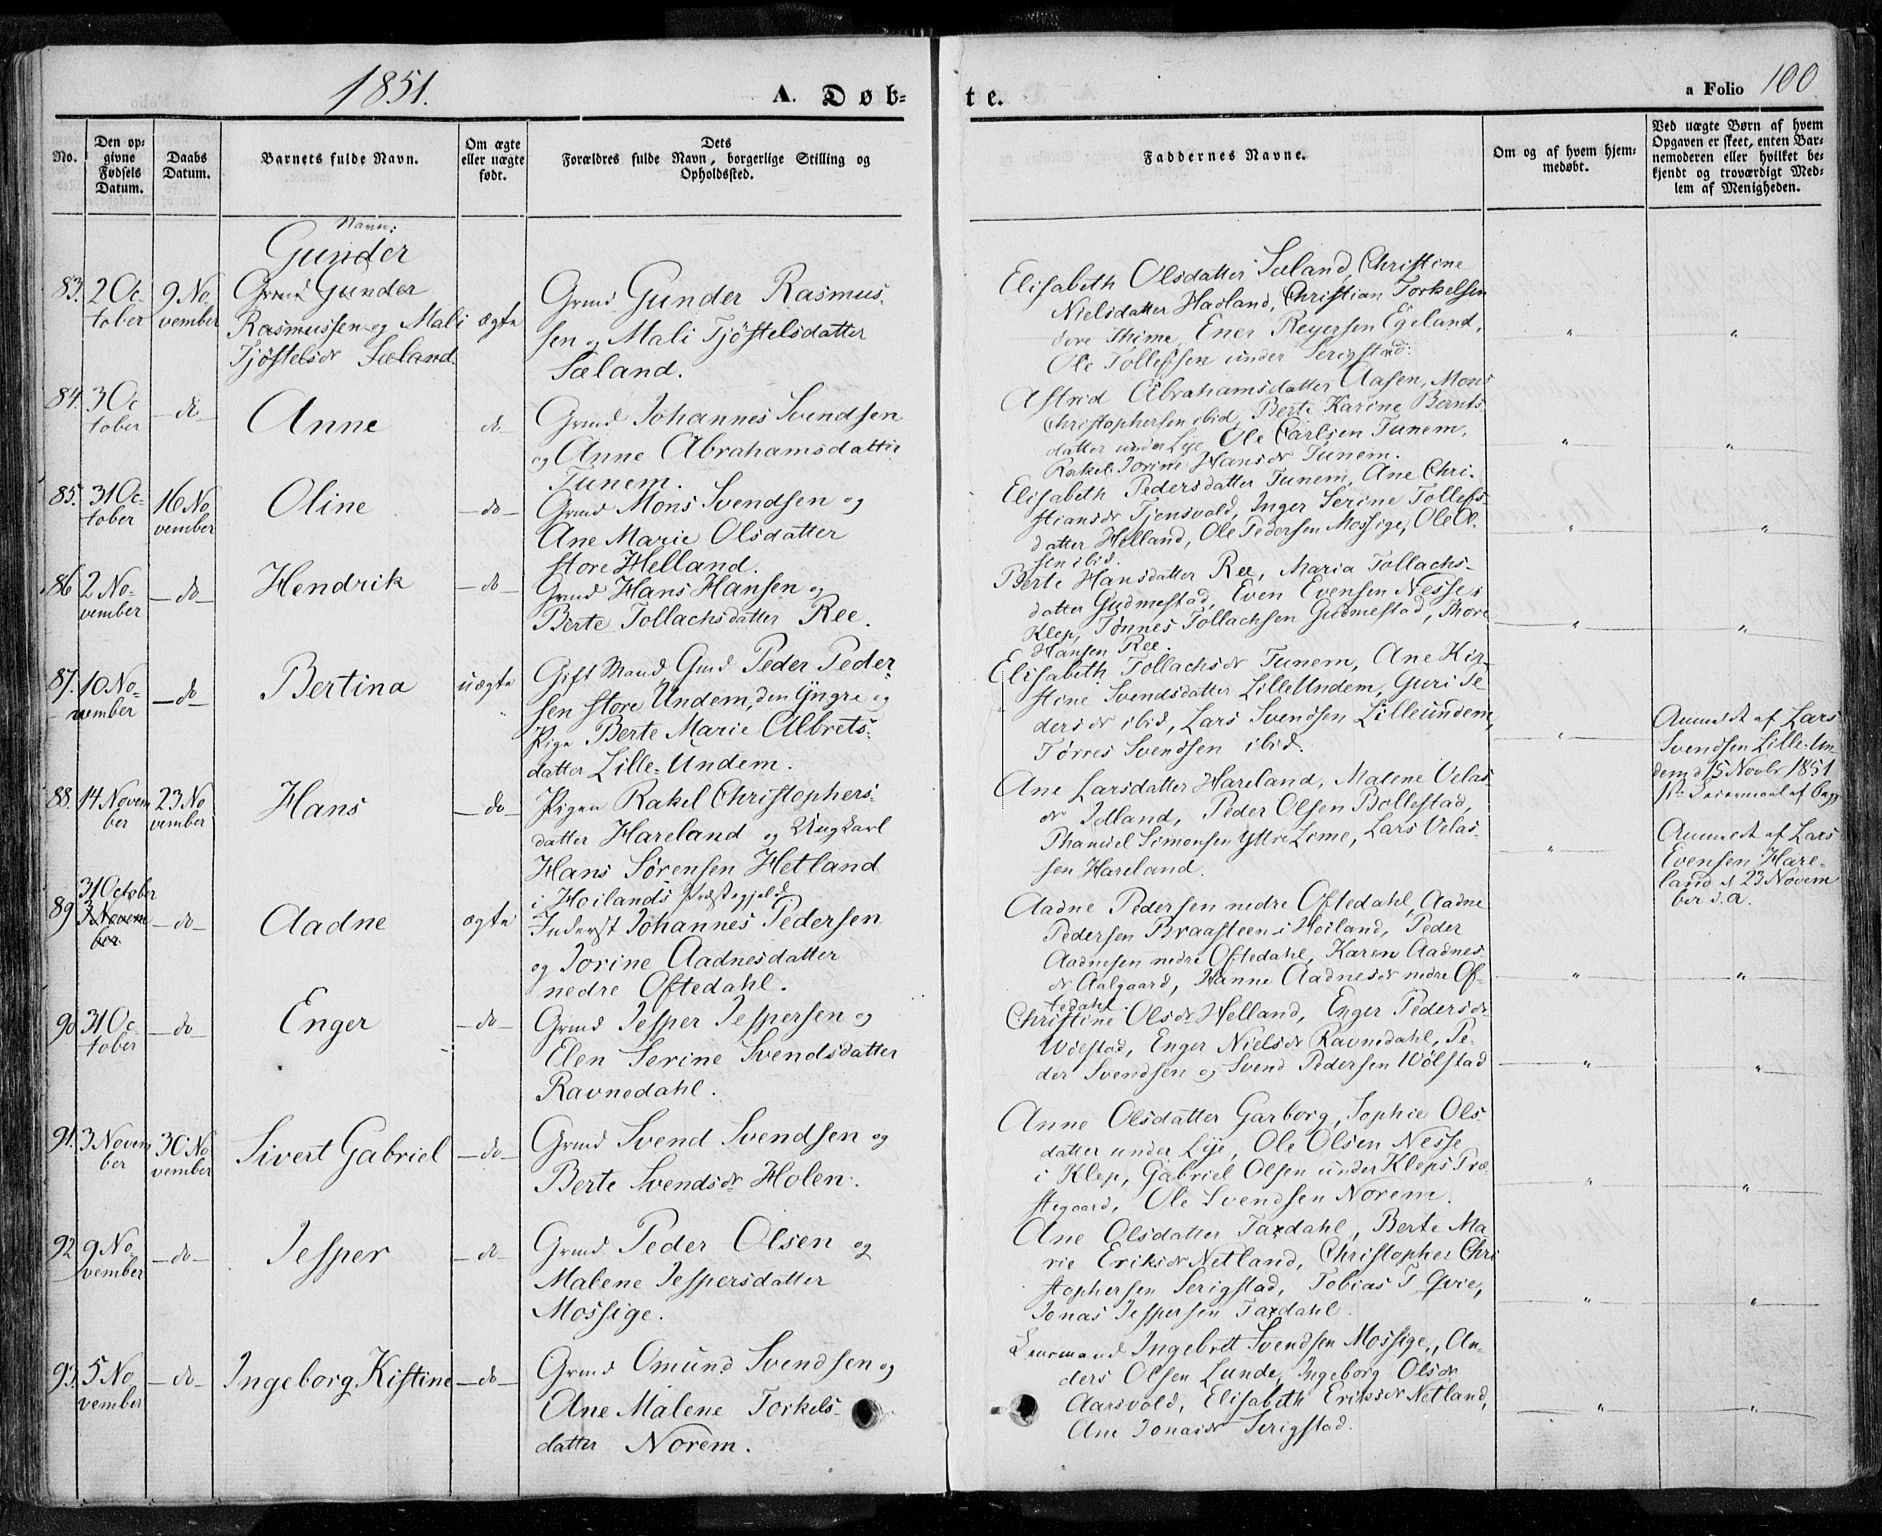 1851.
A. Døb-
te.
a Folio 100
No.
Den op-
givne
Fødsels
Datum.
Daabs
Datum.
Barnets fulde Navn.
Om ægte
eller uægte
født.
Dets
Forældres fulde Navn, borgerlige Stilling og
Opholdssted.
Faddernes Navne.
Om og af hvem hjem-
medøbt.
Ved uægte Børn af hvem
Opgaven er skeet, enten Bar-
nemoderen eller hvilket be-
kjendt og troværdigt Med-
lem af Menigheden.
83.
2 Oc-
tober
9 No-
vember
Navn:
Gunder
Grmd Gunder
Rasmussen og Mali
Tjøstelsdr Sæland.
ægte
Grmd Gunder Rasmus-
sen og Mali Tjøstelsdatter
Sæland.
Elisabeth Olsdatter Sæland, Christine
Nielsdatter Hadland, Christian Torkelsen
Thime, Ener Reyersen Egeland,
Ole Tollefsen under Serigstad.
"
"
84.
3 Oc
tober
do
Anne
do
Grmd Johannes Svendsen
og Anne Abrahamsdatter
Tunem.
Astrid Abrahamsdatter Aasen, Mons
Christophersen ibid, Berte Karine Bernts-
datter under Lye, Ole Carlsen Tunem,
Rakel Jorine Hansdr Tunem.
"
"
85.
31 Oc-
tober
16 No
vember
Oline
do
Grmd Mons Svendsen og
Ane Marie Olsdatter
store Helland.
Elisabeth Pedersdatter Tunem, Ane Chri-
stiansdr Tjensvold, Inger Serine Tollefs-
datter Helland, Ole Pedersen Mossige, Ole Ol-
sen ibid.
"
"
86
2 No-
vember
do
Hendrik
do
Grmd Hans Hansen og
Berte Tollachsdatter Ree.
Berte Hansdatter Ree, Maria Tollachs-
datter Gudmestad, Even Evensen Nesse i
Klep, Tønnes Tollachsen Gudmestad, Thore
Hansen Ree.
"
"
87.
10 No-
vember
do
Bertina
uægte
Gift Mand Gmd Peder Peder-
sen store Undem, den Yngre og
Pige Berte Marie Albrets-
datter Lille-Undem.
Elisabeth Tollachsdr Tunem, Ane Kir-
stine Svendsdatter Lille Undem, Guri Pe
dersdr ibid, Lars Svendsen Lilleundem,
Tørres Svendsen ibid.
"
Anmeldt af Lars
Svendsen Lille-Un
dem d 15 Novbr 1851
88.
14 Novem
ber
23 No
vember
Hans
do
Pigen Rakel Christophers-
datter Hareland og Ungkarl
Hans Sørensen Hetland
i Hoilands Præstegjeld
Ane Larsdatter Hareland, Malene Velas-
dr Idland, Peder Olsen Bollestad,
Thaniel Simonsen Yttre Lime, Lars Velas-
sen Hareland.
"
Anmeldt af Lars
Evensen Hare-
land d 23 Novem
ber s.a.
89
31 October
3 Novem
ber
do
Aadne
ægte
Inderst Johannes Pedersen
og Jorine Aadnesdatter
nedre Oftedahl.
Aadne Pedersen nedre Oftedahl, Aadne
Pedersen Braasteen i Hoiland, Peder
Aadnesen nedre Oftedahl, Karen Aadnes
dr Aalgaard, Hanne Aadnesdr nedre Of-
tedahl.
"
"
90
31 Oc-
tober
do
Enger
do
Grmd Jesper Jespersen og
Elen Serine Svendsdatter
Ravnedahl.
Christine Olsdr Helland, Enger Pedersdr
Wølstad, Enger Nielsdr Ravnedahl, Pe-
der Svendsen og Svend Pedersen Wølstad
"
"
91.
3 Novem
ber
30 No
vember
Sivert Gabriel
do
Grmd Svend Svendsen og
Berte Svendsdr Holen.
Anne Olsdatter Garborg, Sophie Ols-
datter under Lye, Ole Olsen Nesse
i Klep, Gabriel Olsen under Kleps Præ-
stegaard, Ole Svendsen Norem.
"
"
92.
9 No-
vember
do
Jesper
do
Grmd Peder Olsen og
Malene Jespersdatter
Mossige.
Ane Olsdatter Taxdahl, Berte Ma
rie Eriksdr Netland, Christopher Chri
stophersen Serigstad, Tobias T Qvie,
Jonas Jespersen Taxdahl.
"
"
93.
5 No
vember
do
Ingeborg Kistine
do
Grmd Omund Svendsen og
Ane Malene Torkels-
datter Norem.
Ingebret Svendsen Mossige, An-
ders Olsen Lunde, Ingeborg Olsdr
Aarsvold, Elisabeth Eriksdr Netland,
Ane Jonasdr Serigstad.
"
"